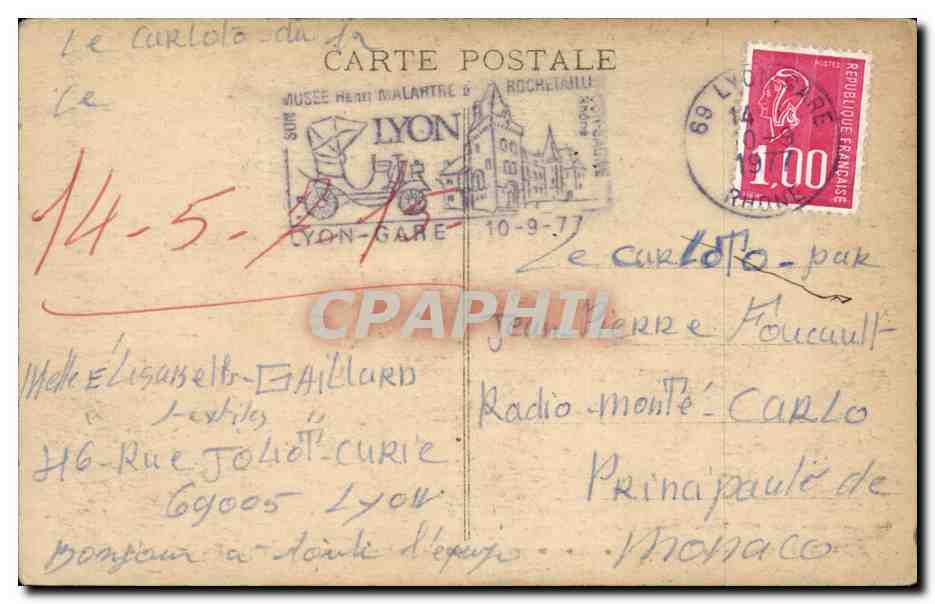 Le Carloto du 12
Le
CARTE POSTALE
MUSEE HENRI MALARTRE à ROCHETAILLEE
SUR
LYON
Rhône
LYON-GARE 10-9-77
69 LYON GARE
14
10-9
1977
RHONE
POSTES
REPUBLIQUE FRANÇAISE
1,00
14-5-
15
CPAPHIL
Melle Élisabeth GAILLARD
" textiles "
76 Rue JOLIOT-CURIE
69005 Lyon
Bonjour a toute l'équipe
Le CARLOTO - par
Jean Pierre Foucault
Radio-monté-CARLO
Principauté de
Monaco